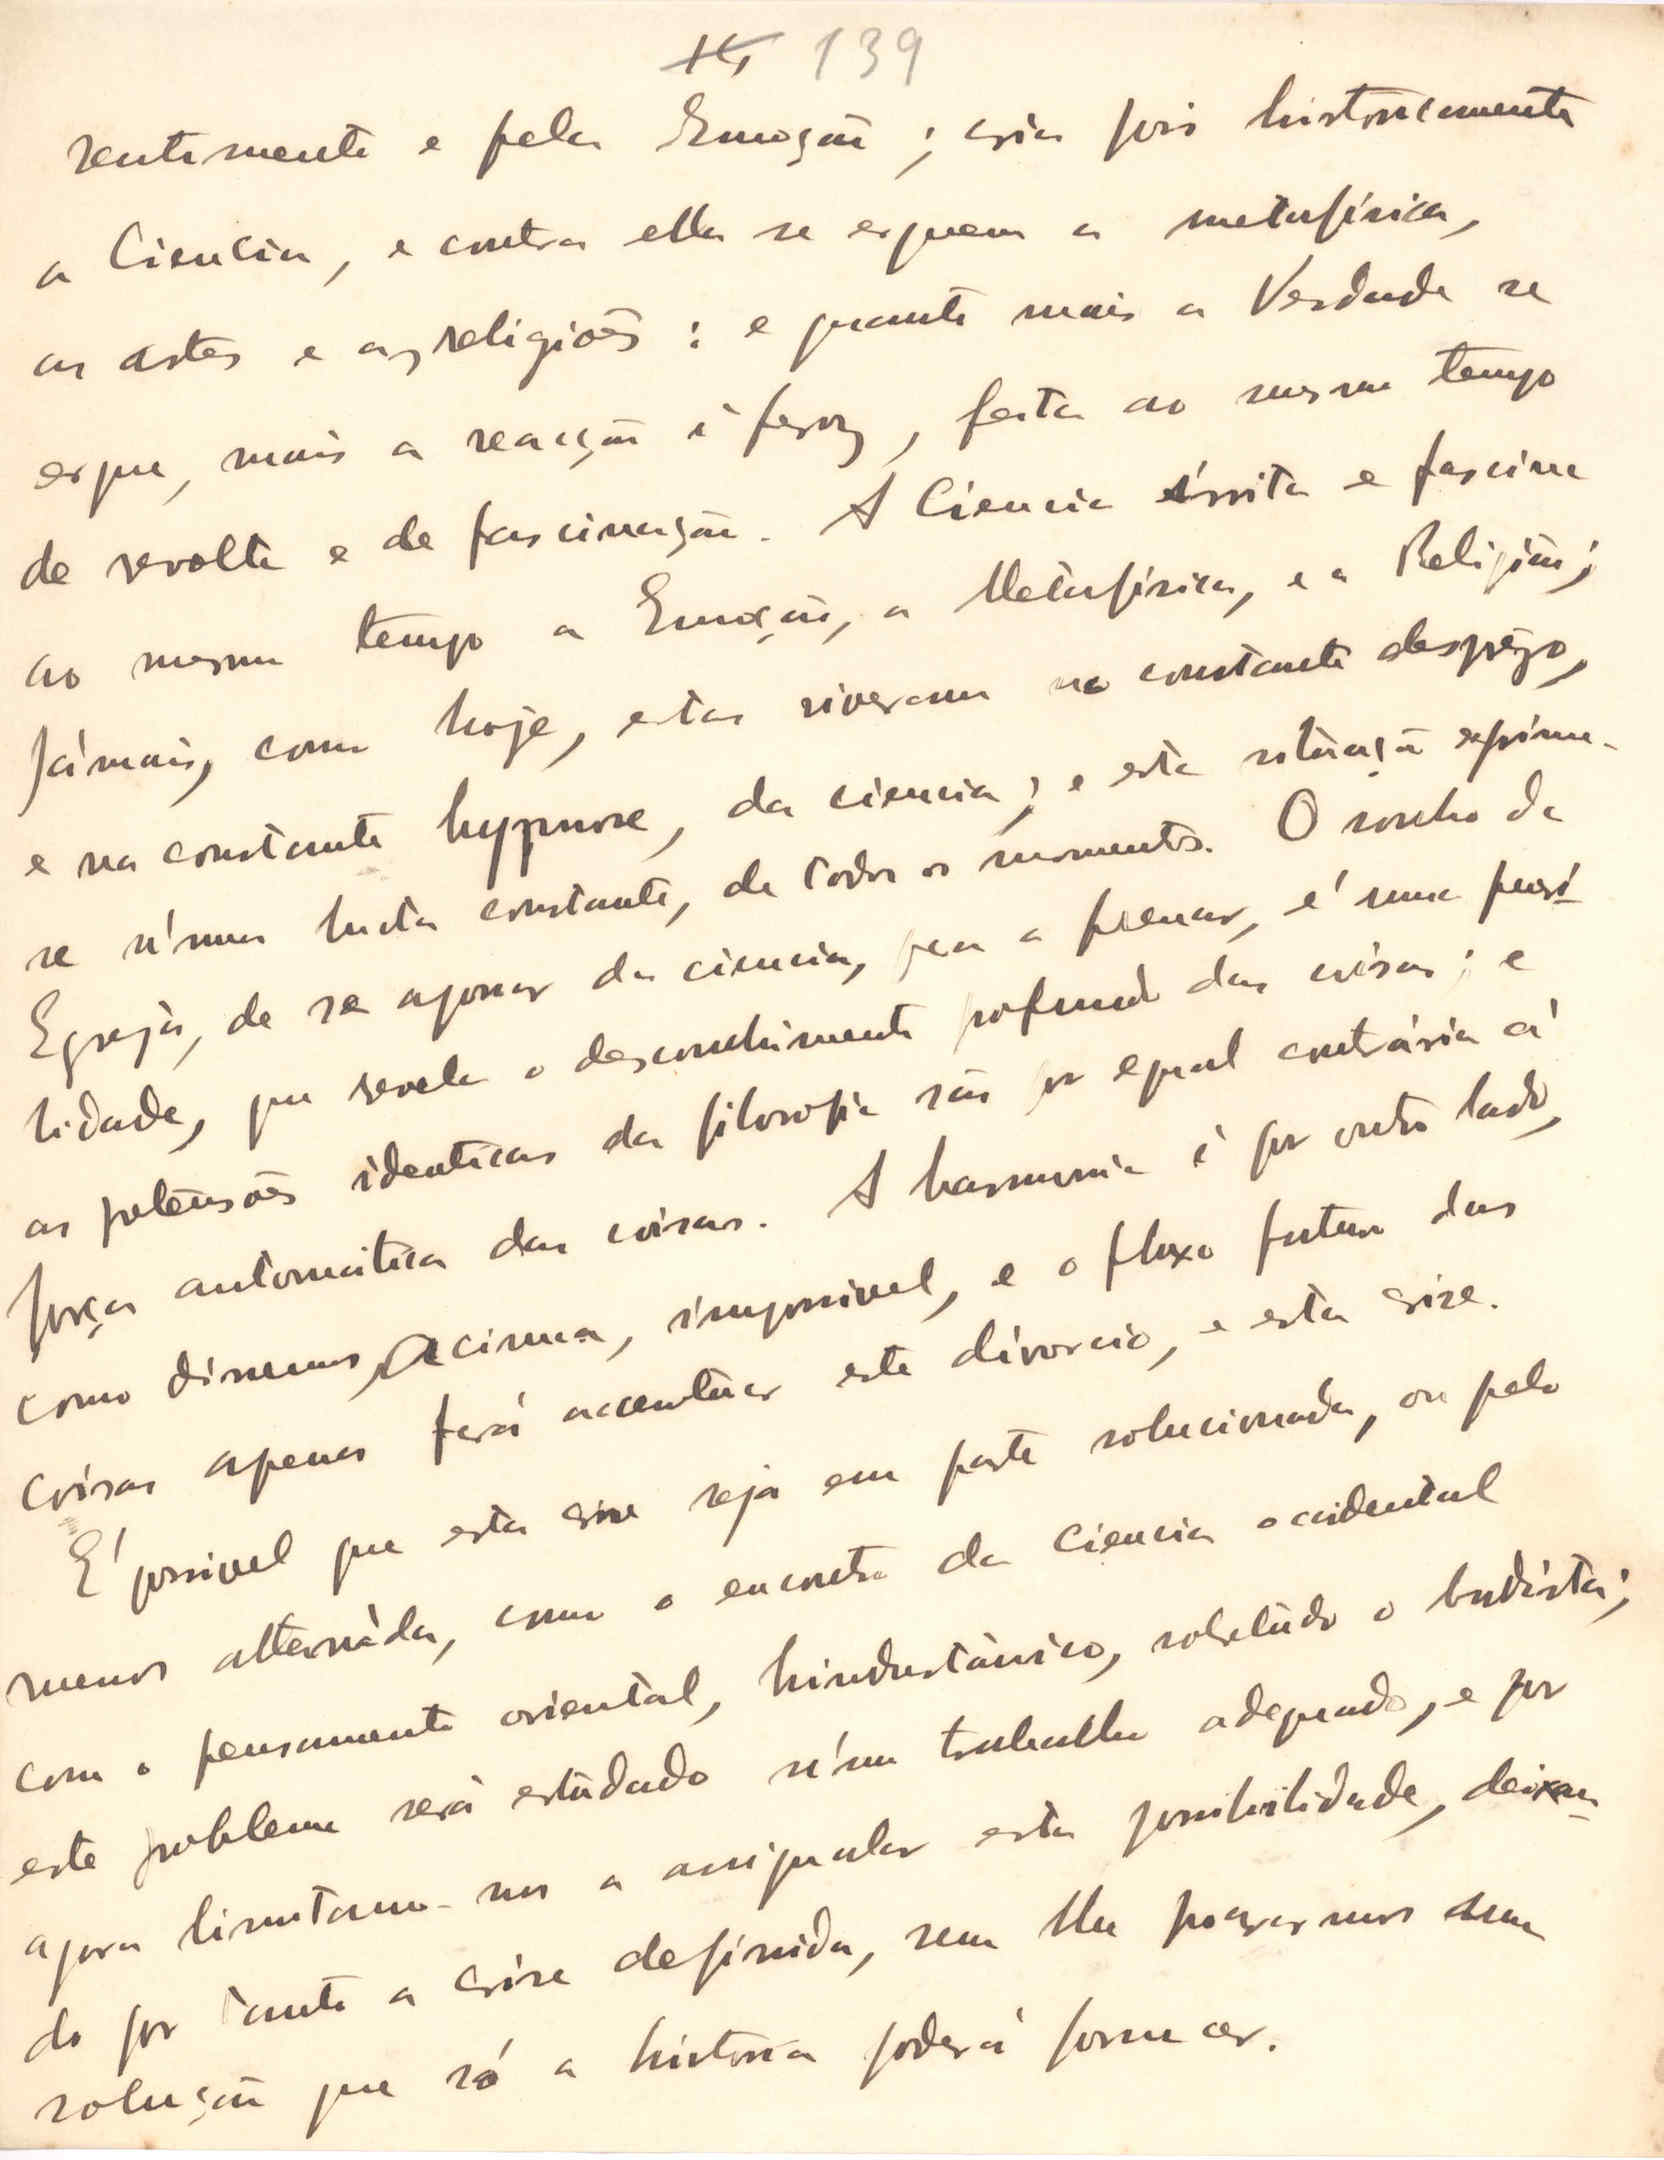 139
sentimento e pela Emoção; cria pois historicamente
a Ciencia, e contra ella se erguem a metafísica,
as artes e as religiões: e quanto mais a Verdade se
ergue, mais a reacção é feroz, feita ao mesmo tempo
de revolta e de fascinação. A Ciencia irrita e fascina
ao mesmo tempo a Emoção, a Metafísica, e a Religião;
Jámais, como hoje, estas viveram no constante desprêzo,
e na constante hypnose, da ciencia; e esta situação exprime-
se n'uma lucta constante, de todos os momentos. O sonho da
Egreja, de se apossar da ciencia, pra a frenar, é uma pueri-
lidade, que revela o desconhecimento profundo das coisas; e
as pretensões identicas da filosofia são por egual contrária á
força automática das coisas. A harmonia é por outro lado,
como dissemos acima, impossivel, e o fluxo futuro das
coisas apenas fará accentuar este divorcio, e esta crise.
É possivel que esta crise seja em parte solucionada, ou pelo
menos alternáda, com o encontro da ciencia occidental
com o pensamento oriental, hindustânico, sobretudo o budista;
este problema será estudado n'um trabalho adequado, e por
agora limitamo-nos a assignalar esta possibilidade, deixan-
do por tanto a crise definida, sem lhe pormos uma
solução que só a historia poderá fornecer.